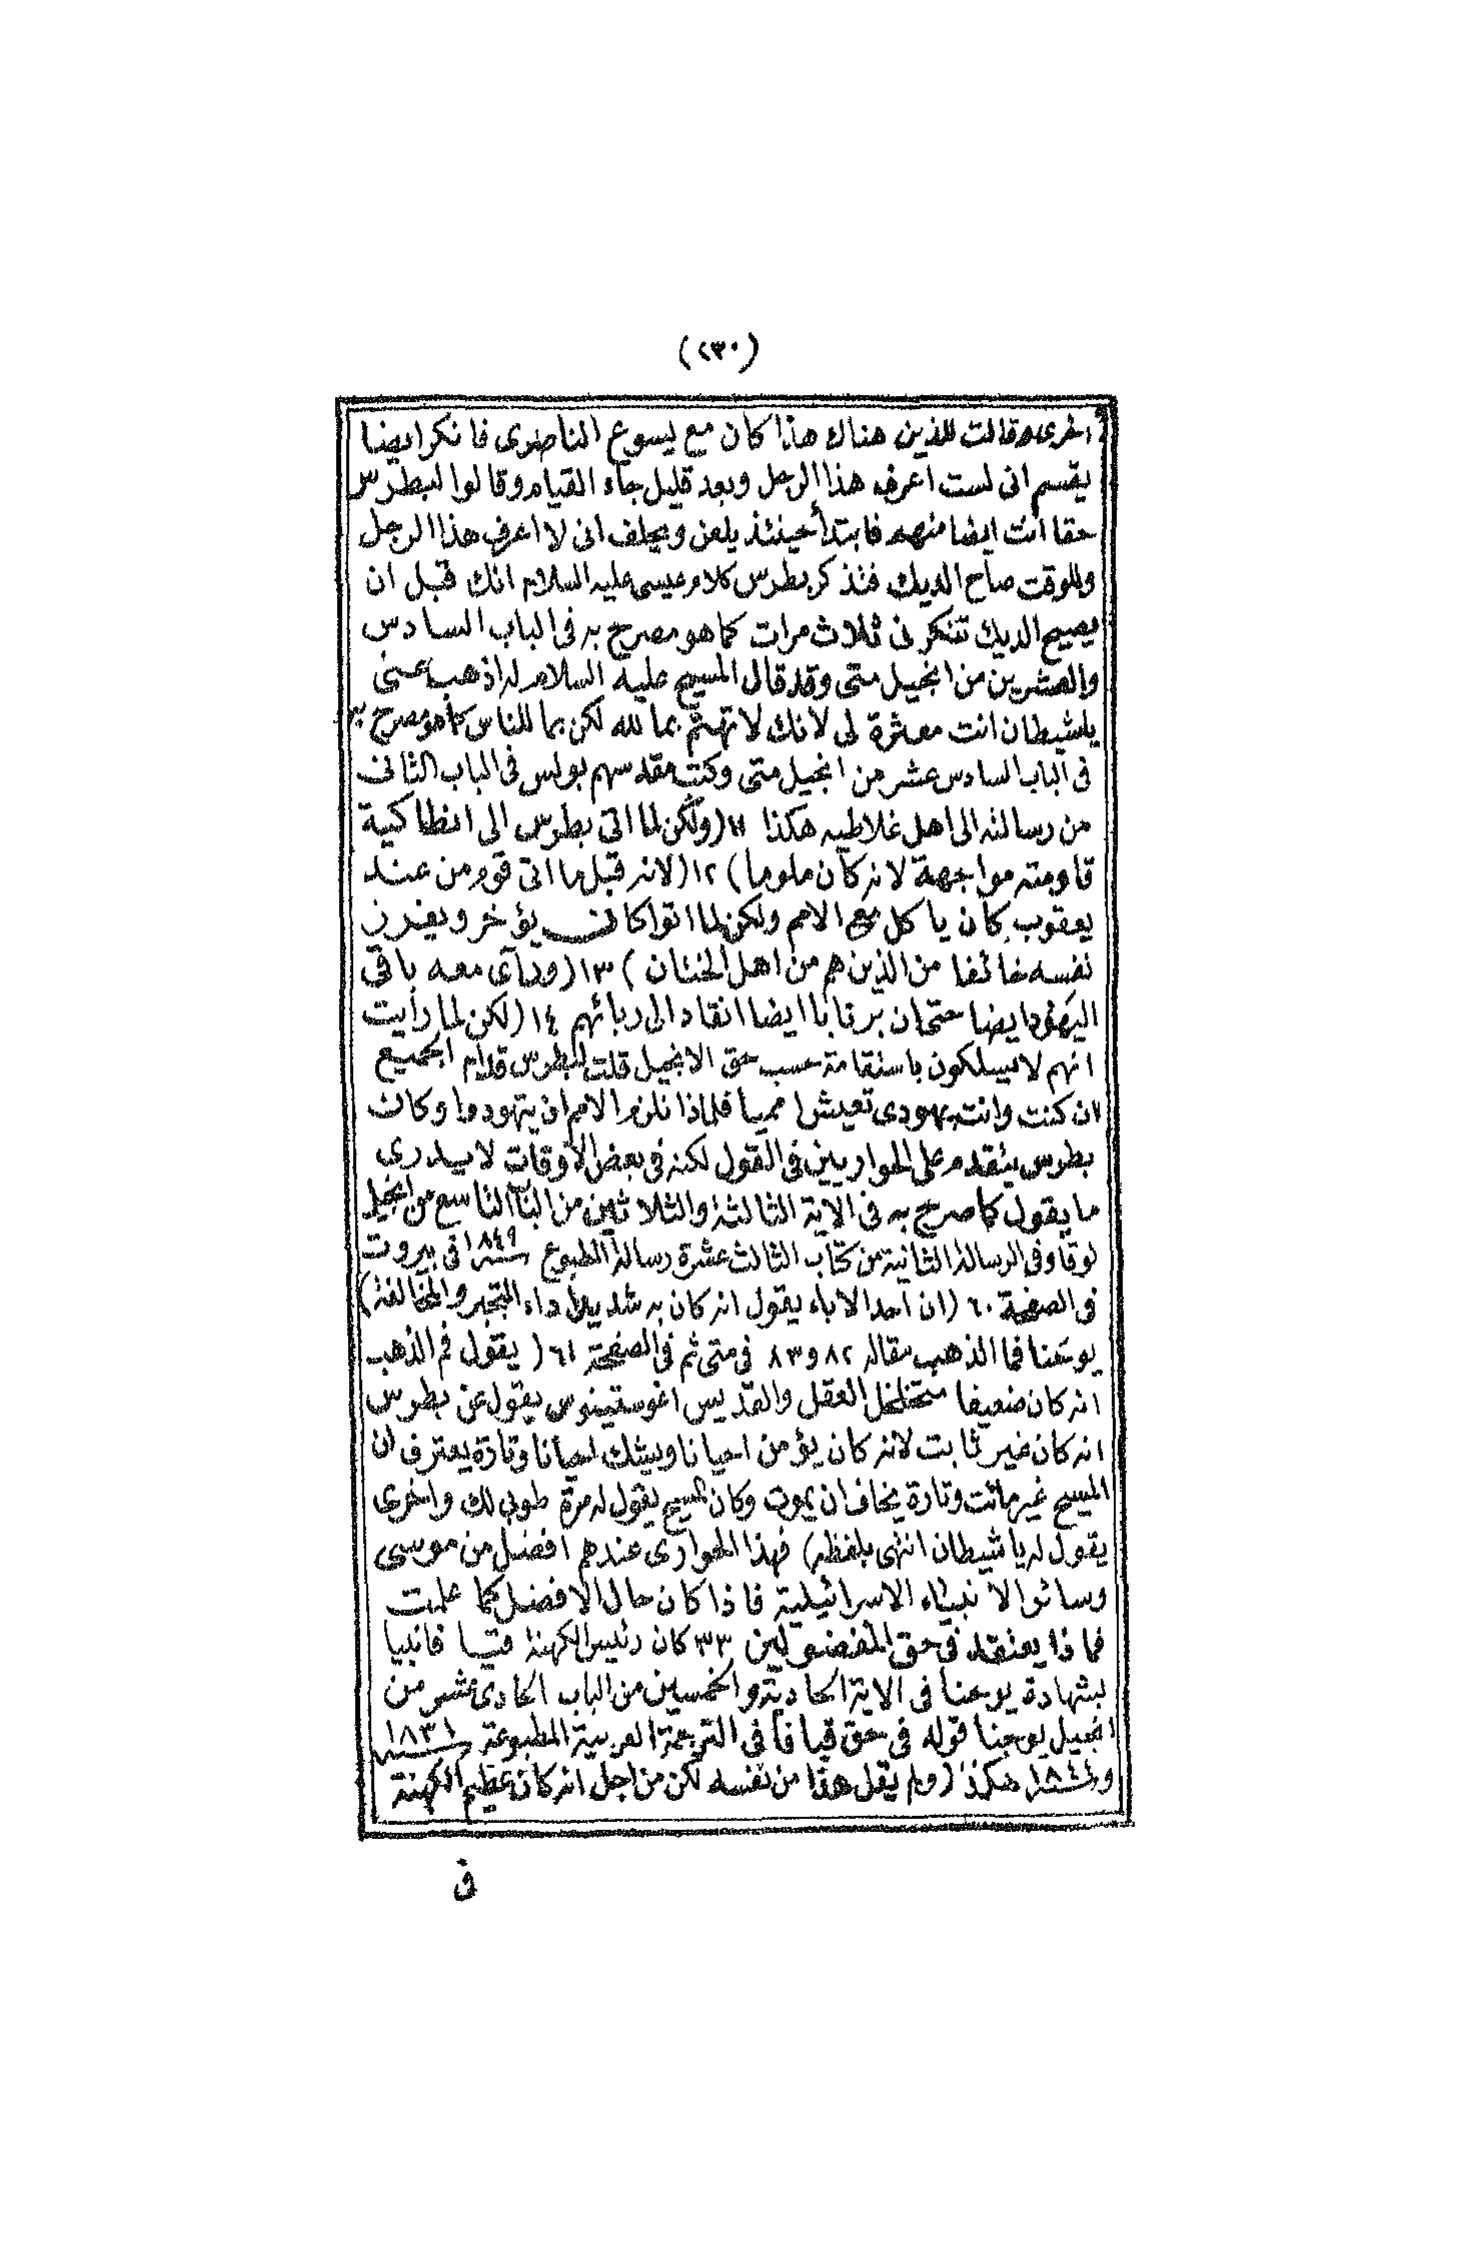 (٢٣٠)
اخرى وقالت للذين هناك هذا كان مع يسوع الناصرى فانكر ايضا
يقسم انى لست اعرف هذا الرجل وبعد قليل جاء القيام وقالوا لبطرس
حقا انت ايضا منهم فابتدأ حينئذ يلعن ويحلف انى لا اعرف هذا الرجل
وللوقت صاح الديك فتذكر بطرس كلام عيسى عليه السلام انك قبل ان
يصيح الديك تنكرنى ثلاث مرات كما هو مصرح به فى الباب السادس
والعشرين من انجيل متى وقد قال المسيح عليه السلام له اذهب عنى
ياشيطان انت معثرة لى لانك لا تهتم بما لله لكن بما للناس كما هو مصرح به
فى الباب السادس عشر من انجيل متى وكتب مقدسهم بولس فى الباب الثانى
من رسالته الى اهل غلاطيه هكذا ١١ (ولكن لما اتى بطرس الى انطاكية
قاومته مواجهة لانه كان ملوما) ١٢ (لانه قبل ما اتى قوم من عند
يعقوب كان ياكل مع الامم ولكن لما اتوا كان يؤخر ويفرز
نفسه خائفا من الذين هم من اهل الختان) ١٣ (ورآى معه باقى
اليهود ايضا حتى ان برنابا ايضا انقاد الى ريائهم ١٤ (لكن لما رأيت
انهم لا يسلكون باستقامة حسب حق الانجيل قلت لبطرس قدام الجميع
ان كنت وانت يهودى تعيش امميا فلماذا تلزم الامم ان يتهودوا وكان
بطرس يتقدم على الحواريين فى القول لكنه فى بعض الاوقات لا يدرى
ما يقول كما صرح به فى الاية الثالثة والثلاثين من الباب التاسع من انجيل
لوقا وفى الرسالة الثانية من كتاب الثالث عشرة رسالة المطبوع سنة ١٨٤٩ فى بيروت
فى الصفحة ٦٠ (ان احد الاباء يقول انه كان به شديدا داء التجبر والمخالفة)
يوحنا فم الذهب مقاله ٨٢ و ٨٣ فى متى ثم فى الصفحة ٦١ (يقول فم الذهب
انه كان ضعيفا متخلخل العقل والقديس اغوستينوس يقول عن بطرس
انه كان غير ثابت لانه كان يؤمن احيانا ويشك احيانا وتارة يعترف ان
المسيح غير مائت وتارة يخاف ان يموت وكان المسيح يقول له مرة طوبى لك واخرى
يقول له يا شيطان انتهى بلفظه) فهذا الحوارى عندهم افضل من موسى
وسائر الانبياء الاسرائيلية فاذا كان حال الافضل كما علمت
فماذا يعتقد فى حق المفضولين ٣٣ كان رئيس الكهنة قيافا نبيا
بشهادة يوحنا فى الاية الحادية والخمسين من الباب الحادى عشر من
انجيل يوحنا قوله فى حق قيافا فى الترجمة العربية المطبوعة سنة ١٨٣١
وسنة ١٨٤٤ هكذا (ولم يقل هذا من نفسه لكن من اجل انه كان عظيم الكهنة
فى